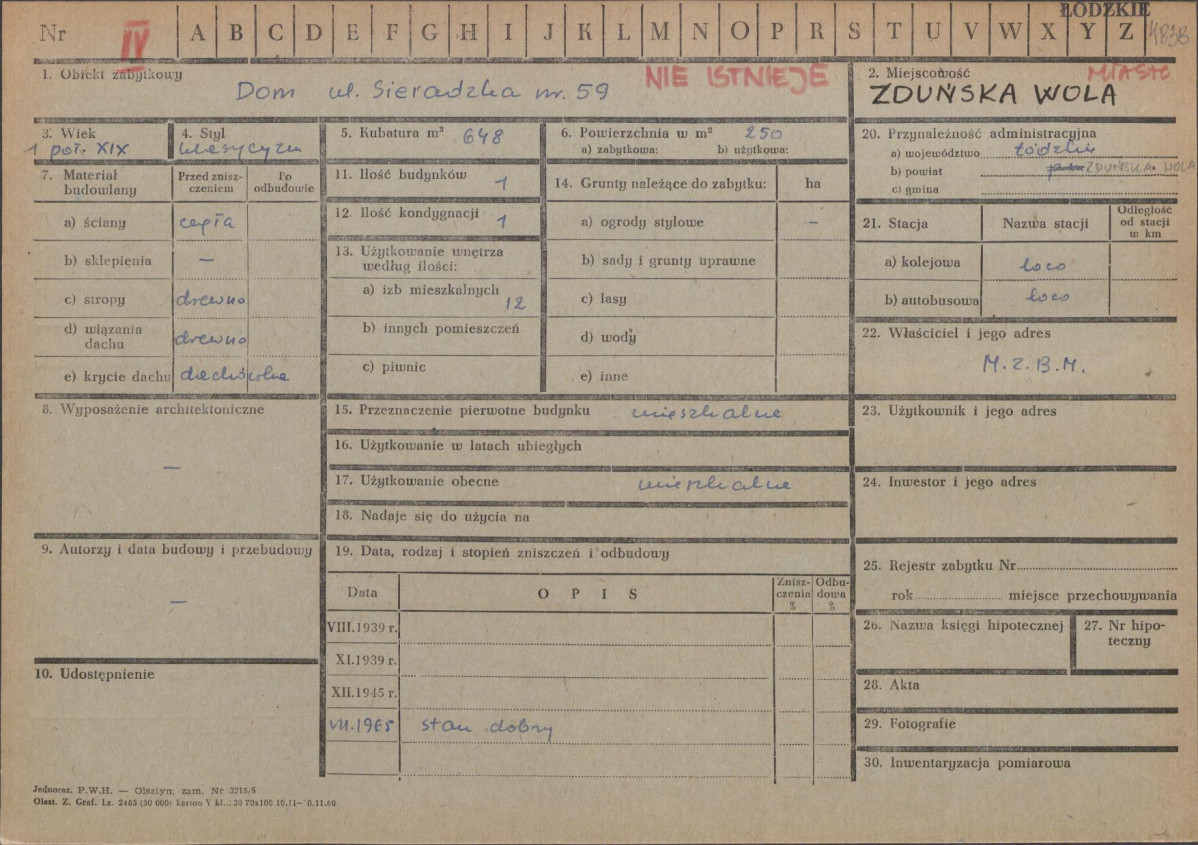 ŁÓDZKIE
Nr IV A B C D E F G H I J K L M N O P R S T U V W X Y Z 4838
1. Obiekt zabytkowy
Dom ul. Sieradzka nr. 59
NIE ISTNIEJE
2. Miejscowość MIASTO
ZDUŃSKA WOLA
3. Wiek
1 poł. XIX
4. Styl
klasycyzm
5. Kubatura m³ 648
6. Powierzchnia w m² 250
a) zabytkowa: b) użytkowa:
7. Materiał budowlany
Przed zniszczeniem
Po odbudowie
a) ściany cegła
b) sklepienia —
c) stropy drewno
d) wiązania dachu drewno
e) krycie dachu dachówka
8. Wyposażenie architektoniczne
—
9. Autorzy i data budowy i przebudowy
—
10. Udostępnienie
11. Ilość budynków 1
12. Ilość kondygnacji 1
13. Użytkowanie wnętrza według ilości:
a) izb mieszkalnych 12
b) innych pomieszczeń
c) piwnic
14. Grunty należące do zabytku: ha
a) ogrody stylowe —
b) sady i grunty uprawne
c) lasy
d) wody
e) inne
15. Przeznaczenie pierwotne budynku mieszkalne
16. Użytkowanie w latach ubiegłych
17. Użytkowanie obecne mieszkalne
18. Nadaje się do użycia na
19. Data, rodzaj i stopień zniszczeń i odbudowy
Data OPIS Zniszczenia % Odbudowa %
VIII.1939 r.
XI.1939 r.
XII.1945 r.
VII.1965 stan dobry
20. Przynależność administracyjna
a) województwo łódzkie
b) powiat ZDUŃSKA WOLA
c) gmina
21. Stacja Nazwa stacji Odległość od stacji w km
a) kolejowa loco
b) autobusowa loco
22. Właściciel i jego adres
M.Z.B.M.
23. Użytkownik i jego adres
24. Inwestor i jego adres
25. Rejestr zabytku Nr
rok miejsce przechowywania
26. Nazwa księgi hipotecznej
27. Nr hipoteczny
28. Akta
29. Fotografie
30. Inwentaryzacja pomiarowa
Jednocz. P.W.H. — Olsztyn, zam. Nr 3215/S
Olszt. Z. Graf. Lz. 2485 (30 000) karton V kl.